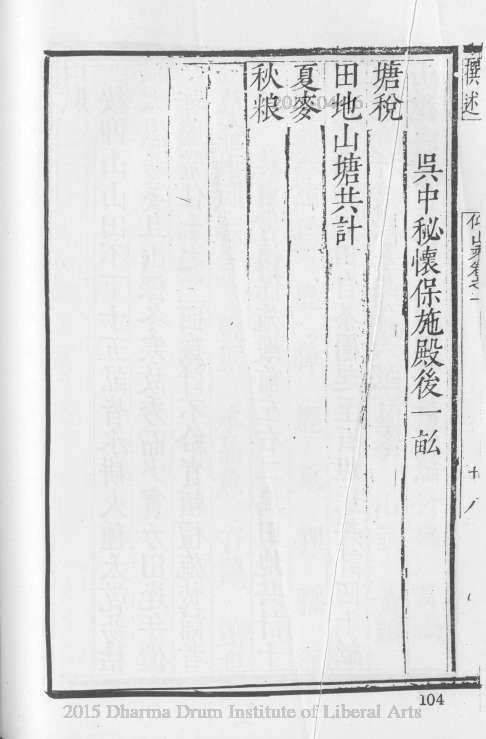 撰述
仰山乘卷之一
十八
吳中秘懷保施殿後一畝
塘稅
田地山塘共計
夏麥
秋粮
104
2015 Dharma Drum Institute of Liberal Arts